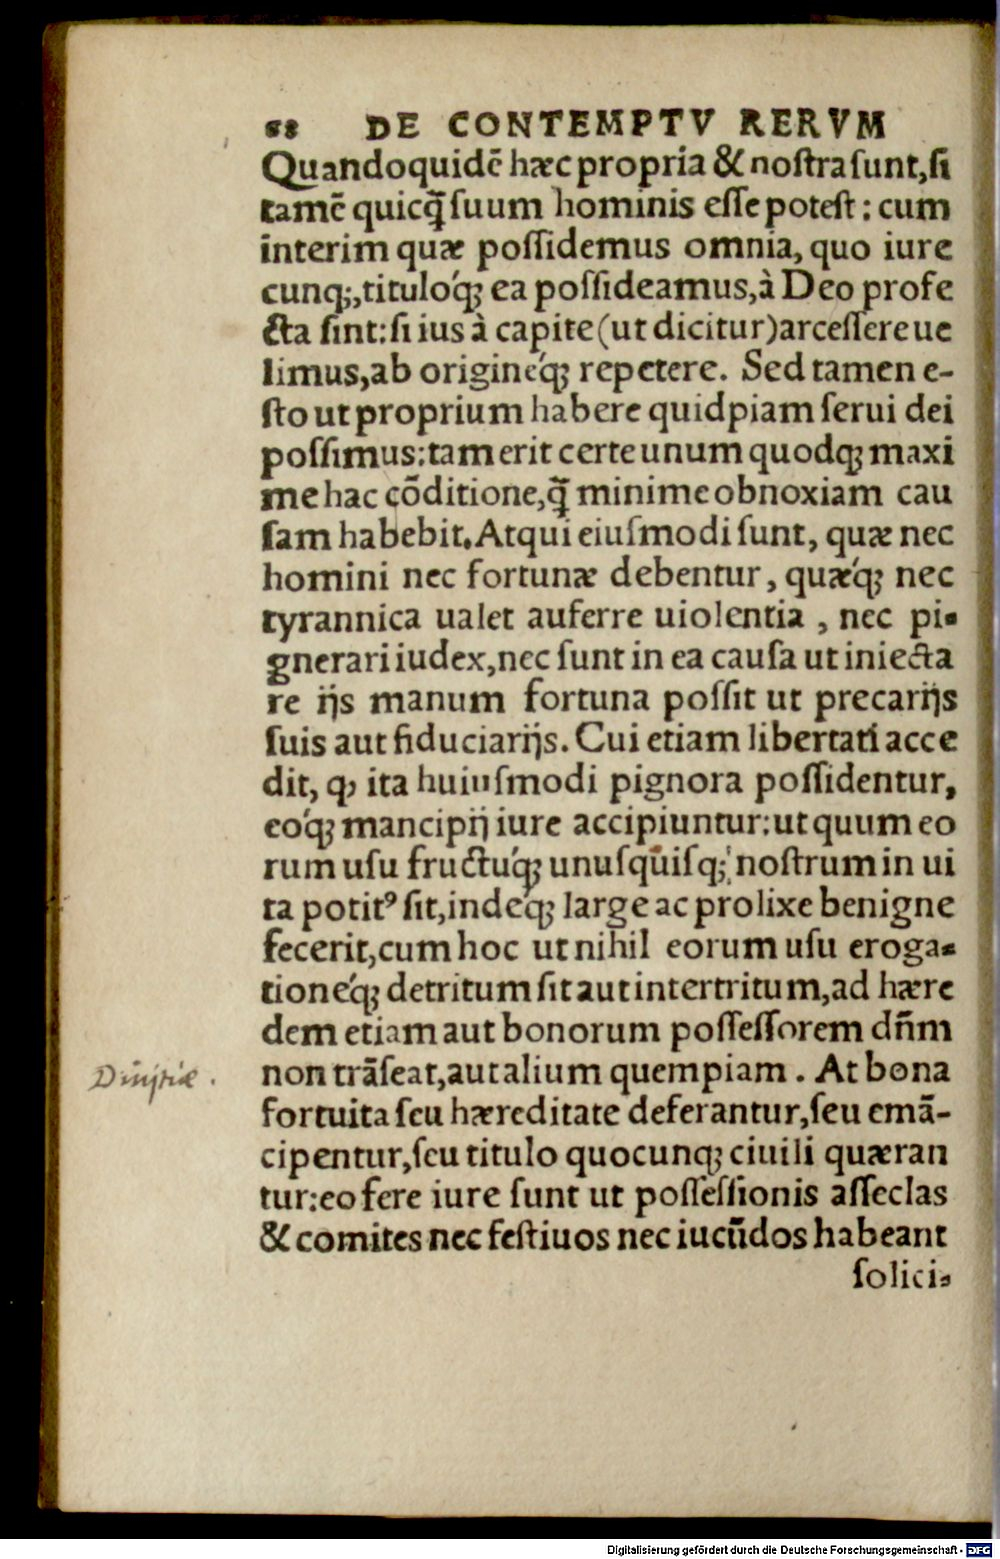 58 DE CONTEMPTV RERVM
Quandoquidē hæc propria & nostra sunt, si
tamē quicq̃ suum hominis esse potest: cum
interim quæ possidemus omnia, quo iure
cunq;, tituloq́; ea possideamus, à Deo profe
cta sint: si ius à capite (ut dicitur) arcessere ue
limus, ab origineq́; repetere. Sed tamen e-
sto ut proprium habere quidpiam serui dei
possimus: tam erit certe unum quodq; maxi
me hac cōditione, q̃ minime obnoxiam cau
sam habebit. Atqui eiusmodi sunt, quæ nec
homini nec fortunæ debentur, quæq́; nec
tyrannica ualet auferre uiolentia, nec pi-
gnerari iudex, nec sunt in ea causa ut iniecta
re ijs manum fortuna possit ut precarijs
suis aut fiduciarijs. Cui etiam libertati acce
dit, ꝙ ita huiusmodi pignora possidentur,
eoq́; mancipij iure accipiuntur: ut quum eo
rum usu fructuq́; unusquisq; nostrum in ui
ta potitꝰ sit, indeq́; large ac prolixe benigne
fecerit, cum hoc ut nihil eorum usu eroga-
tioneq́; detritum sit aut intertritum, ad hære
dem etiam aut bonorum possessorem dñm
non trāseat, aut alium quempiam. At bona
Diuitiæ.
fortuita seu hæreditate deferantur, seu emā-
cipentur, seu titulo quocunq; ciuili quæran
tur: eo fere iure sunt ut possessionis asseclas
& comites nec festiuos nec iucūdos habeant
solici-
Digitalisierung gefördert durch die Deutsche Forschungsgemeinschaft - DFG